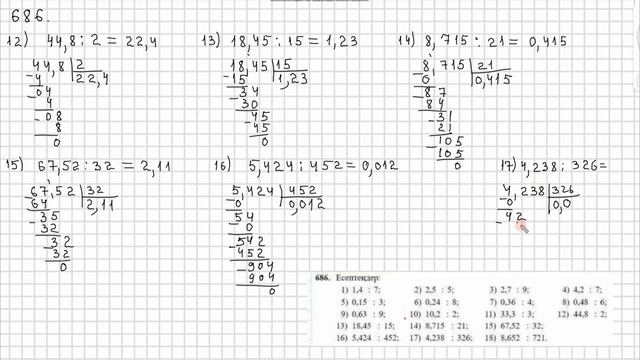 686.
12) 44,8 : 2 = 22,4
44,8 | 2
4 22,4
04
4
08
8
0
13) 18,45 : 15 = 1,23
18,45 | 15
15 1,23
34
30
45
45
0
14) 8,715 : 21 = 0,415
8,715 | 21
0 0,415
87
84
31
21
105
105
0
15) 67,52 : 32 = 2,11
67,52 | 32
64 2,11
35
32
32
32
0
16) 5,424 : 452 = 0,012
5,424 | 452
0 0,012
54
0
542
452
904
904
0
17) 4,238 : 326 =
4,238 | 326
0 0,0
42
686. Есептеңдер:
1) 1,4 : 7; 2) 2,5 : 5; 3) 2,7 : 9; 4) 4,2 : 7;
5) 0,15 : 3; 6) 0,24 : 8; 7) 0,36 : 4; 8) 0,48 : 6;
9) 0,63 : 9; 10) 10,2 : 2; 11) 33,3 : 3; 12) 44,8 : 2;
13) 18,45 : 15; 14) 8,715 : 21; 15) 67,52 : 32;
16) 5,424 : 452; 17) 4,238 : 326; 18) 8,652 : 721.